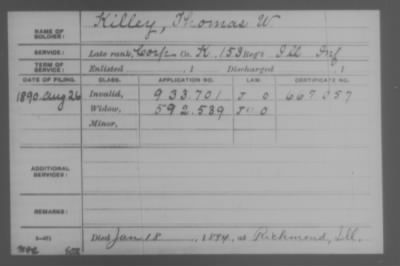 NAME OF SOLDIER: Killey, Thomas W.
SERVICE: Late rank, Corp. Co. K, 153 Reg't Ill Inf
TERM OF SERVICE: Enlisted , 1 Discharged , 1
DATE OF FILING. CLASS. APPLICATION NO. LAW. CERTIFICATE NO.
1890 Aug 26 Invalid, 933.701 J O 667.057
Widow, 592.539 J" O
Minor,
ADDITIONAL SERVICES:
REMARKS:
Died Jan 18, 1894, at Richmond, Ill.